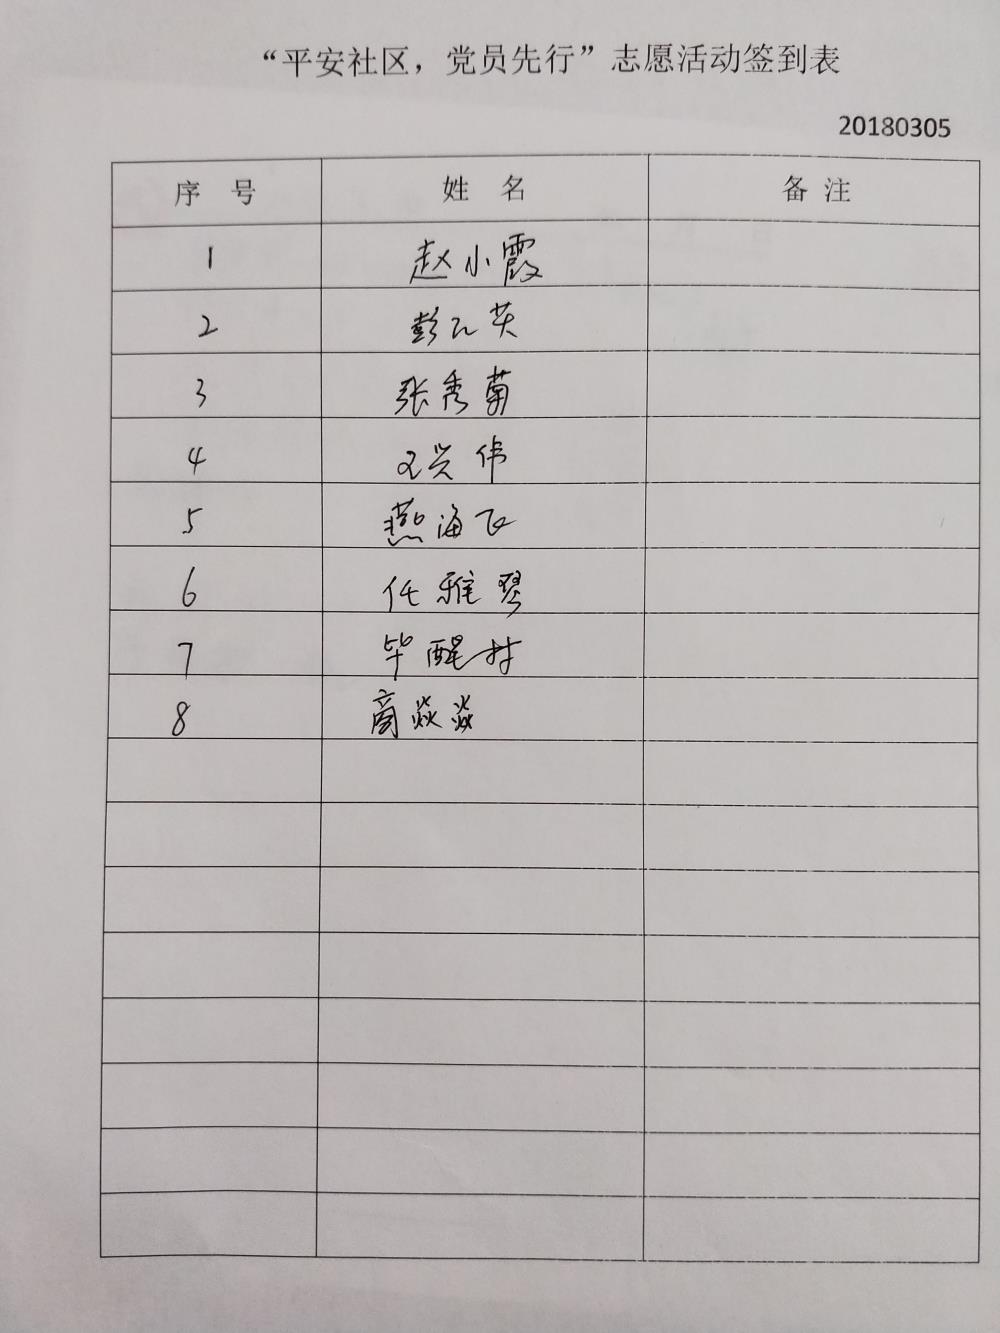 “平安社区，党员先行”志愿活动签到表
20180305
序 号 姓 名 备 注
1 赵小霞
2 彭 英
3 张秀菊
4 王兴伟
5 燕海飞
6 任雅琴
7 毕醒村
8 商焱焱